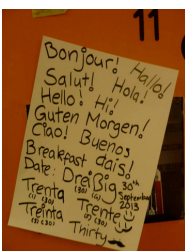 11
Bonjour! Hallo!
Salut! Hola!
Hello! Hi!
Guten Morgen!
Ciao! Buenos
Breakfast dais!
Date: Dreßig 30th
Trenta September
Trente 2013
Treinta
Thirty